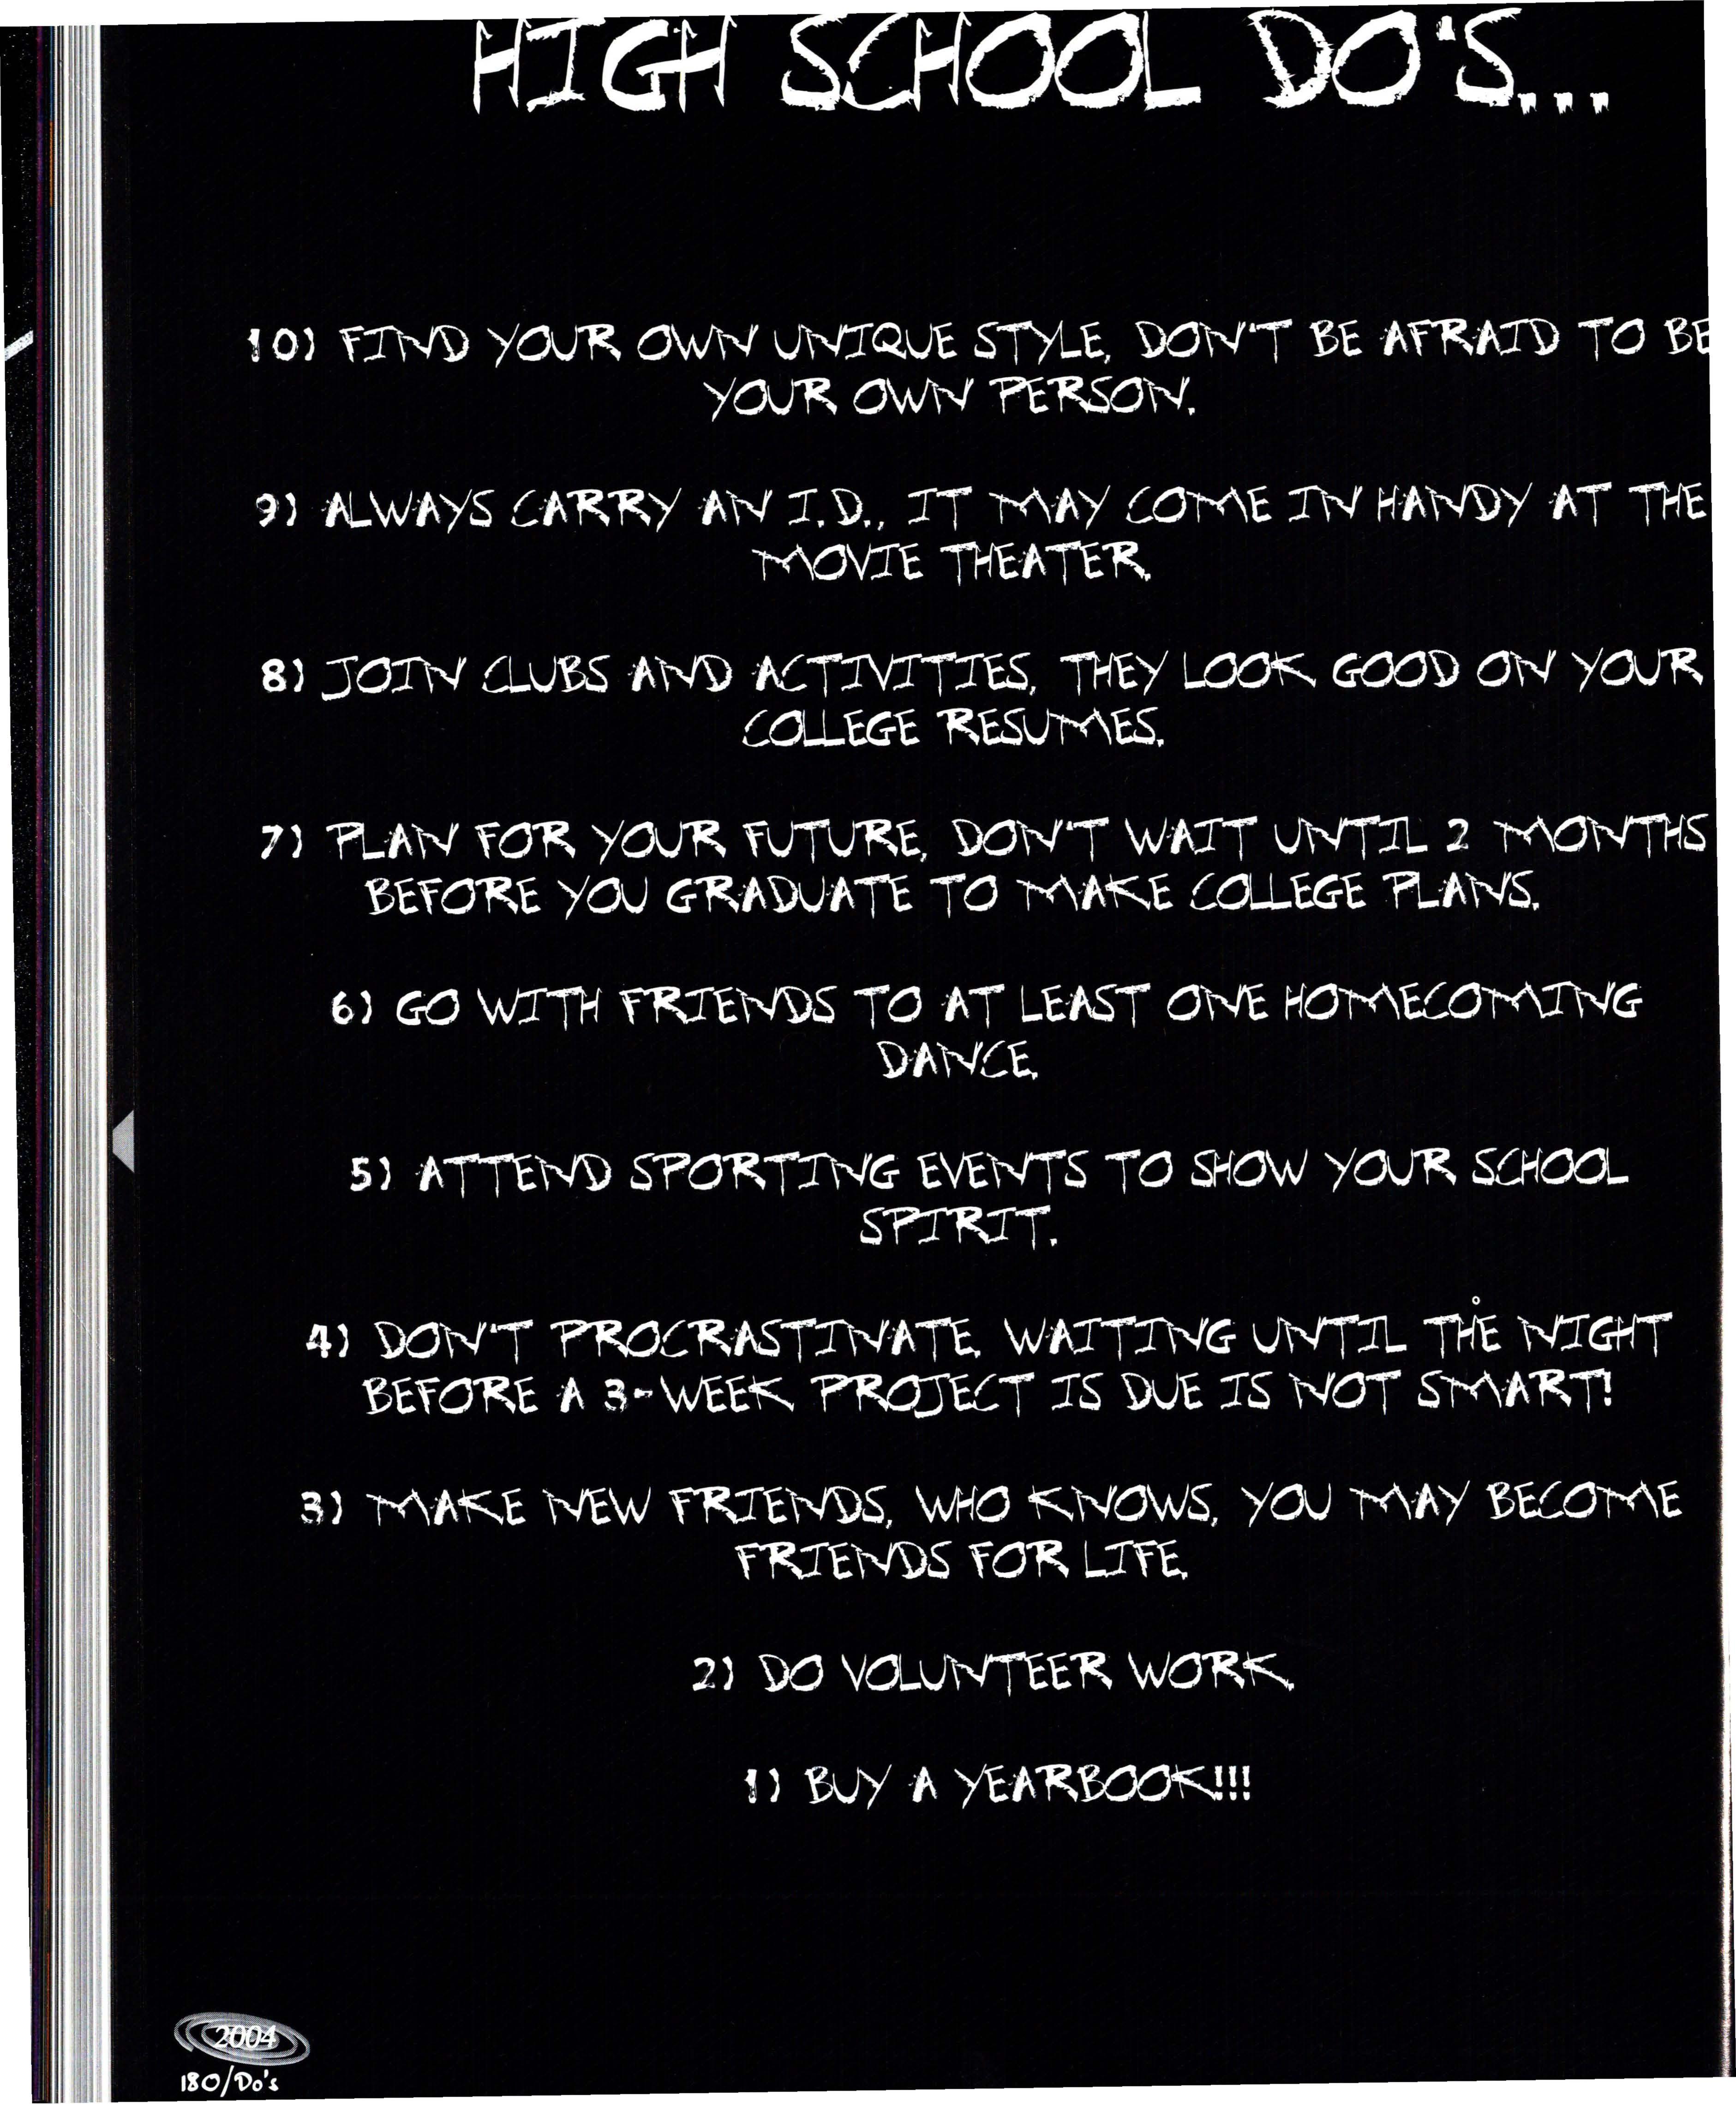 HIGH SCHOOL DO'S...
10) FIND YOUR OWN UNIQUE STYLE, DON'T BE AFRAID TO BE
YOUR OWN PERSON.
9) ALWAYS CARRY AN I.D., IT MAY COME IN HANDY AT THE
MOVIE THEATER.
8) JOIN CLUBS AND ACTIVITIES, THEY LOOK GOOD ON YOUR
COLLEGE RESUMES.
7) PLAN FOR YOUR FUTURE, DON'T WAIT UNTIL 2 MONTHS
BEFORE YOU GRADUATE TO MAKE COLLEGE PLANS.
6) GO WITH FRIENDS TO AT LEAST ONE HOMECOMING
DANCE.
5) ATTEND SPORTING EVENTS TO SHOW YOUR SCHOOL
SPIRIT.
4) DON'T PROCRASTINATE. WAITING UNTIL THE NIGHT
BEFORE A 3-WEEK PROJECT IS DUE IS NOT SMART!
3) MAKE NEW FRIENDS, WHO KNOWS, YOU MAY BECOME
FRIENDS FOR LIFE.
2) DO VOLUNTEER WORK.
1) BUY A YEARBOOK!!!
2004
180/Do's